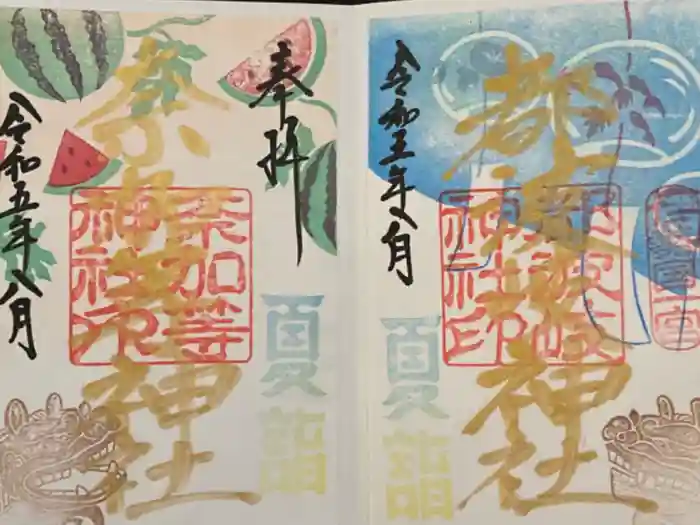 都波岐神社
都波岐
神社印
夏詣
令和五年八月
奉拝
夏詣
奈加等神社
奈加等
神社印
令和五年八月